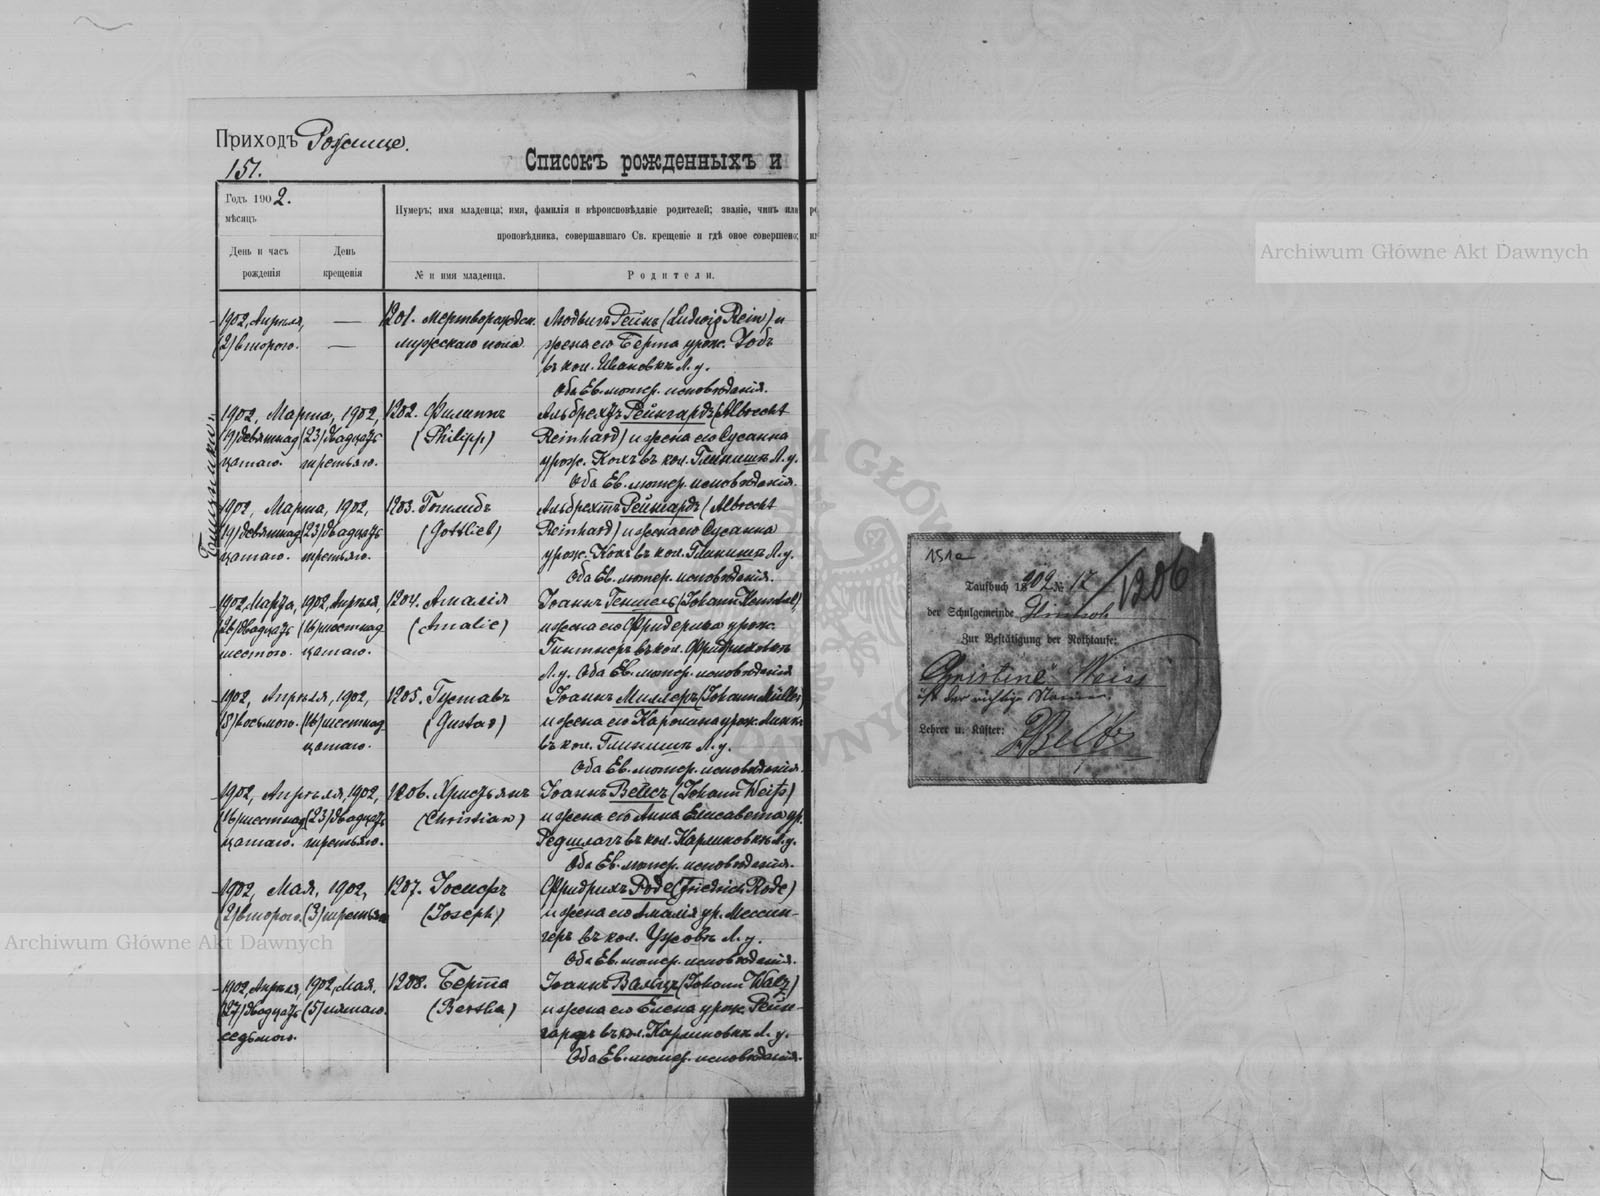 Приходъ Рожище.
151.
Списокъ рожденныхъ и
Годъ 1902.
мѣсяцъ
Нумеръ; имя младенца; имя, фамилія и вѣроисповѣданіе родителей; званіе, чинъ или
проповѣдника, совершавшаго Св. крещеніе и гдѣ оное совершено;
День и часъ
рожденія
День
крещенія
№ и имя младенца.
Родители.
1902, Апрѣля, — 1201. Мертворожден. Людвигъ Рейнъ (Ludwig Rein) и
(2) второго. — мужскаго пола жена его Берта урож. Іобъ
въ кол. Ивановкѣ Л. у.
Оба Ев. лютер. исповѣданія.
Близнецы
1902, Марта, 1902, 1202. Филиппъ Альбрехтъ Рейнгардъ (Albrecht
(19) девятнад (23) двадцать (Philipp) Reinhard) и жена его Сусанна
цатаго. третьяго. урож. Кохъ въ кол. Глинищѣ Л. у.
Оба Ев. лютер. исповѣданія.
1902, Марта, 1902, 1203. Готлибъ Альбрехтъ Рейнгардъ (Albrecht
(19) девятнад (23) двадцать (Gottlieb) Reinhard) и жена его Сусанна
цатаго. третьяго. урож. Кохъ въ кол. Глинищѣ Л. у.
Оба Ев. лютер. исповѣданія.
1902, Марта, 1902, Апрѣля, 1204. Амалія Іоаннъ Геншель (Johann Henschel)
(26) двадцать (16) шестнад (Amalie) и жена его Фридерика урож.
шестого. цатаго. Гинтнеръ въ кол. Фридриховкѣ
Л. у. Оба Ев. лютер. исповѣданія
1902, Апрѣля, 1902, 1205. Густавъ Іоаннъ Миллеръ (Johann Müller)
(8) восьмого. (16) шестнад (Gustav) и жена его Каролина урож. Линкъ
цатаго. въ кол. Глинищѣ Л. у.
Оба Ев. лютер. исповѣданія.
1902, Апрѣля, 1902, 1206. Христьянъ Іоаннъ Вейсъ (Johann Weiß)
(16) шестнад (23) двадцать (Christian) и жена его Анна Елисавета ур.
цатаго. третьяго. Редшлагъ въ кол. Карлиновкѣ Л. у.
Оба Ев. лютер. исповѣданія.
1902, Мая, 1902, 1207. Іосифъ Фридрихъ Роде (Friedrich Rode)
(2) второго. (3) третьяго (Joseph) и жена его Амалія ур. Мессин-
геръ въ кол. Ужовѣ Л. у.
Оба Ев. лютер. исповѣданія.
1902, Апрѣля, 1902, Мая, 1208. Берта Іоаннъ Вальцъ (Johann Walz)
(27) двадцать (5) пятаго. (Bertha) и жена его Елена урож. Рейн-
седьмого. гардъ въ кол. Карлиновкѣ Л. у.
Оба Ев. лютер. исповѣданія.
151a
Taufbuch 1902 № 17 / 1206
der Schulgemeinde
Zur Bestätigung der Nothtaufe:
Christine Weiss
ist der richtige Name.
Lehrer u. Küster:
Archiwum Główne Akt Dawnych
Archiwum Główne Akt Dawnych